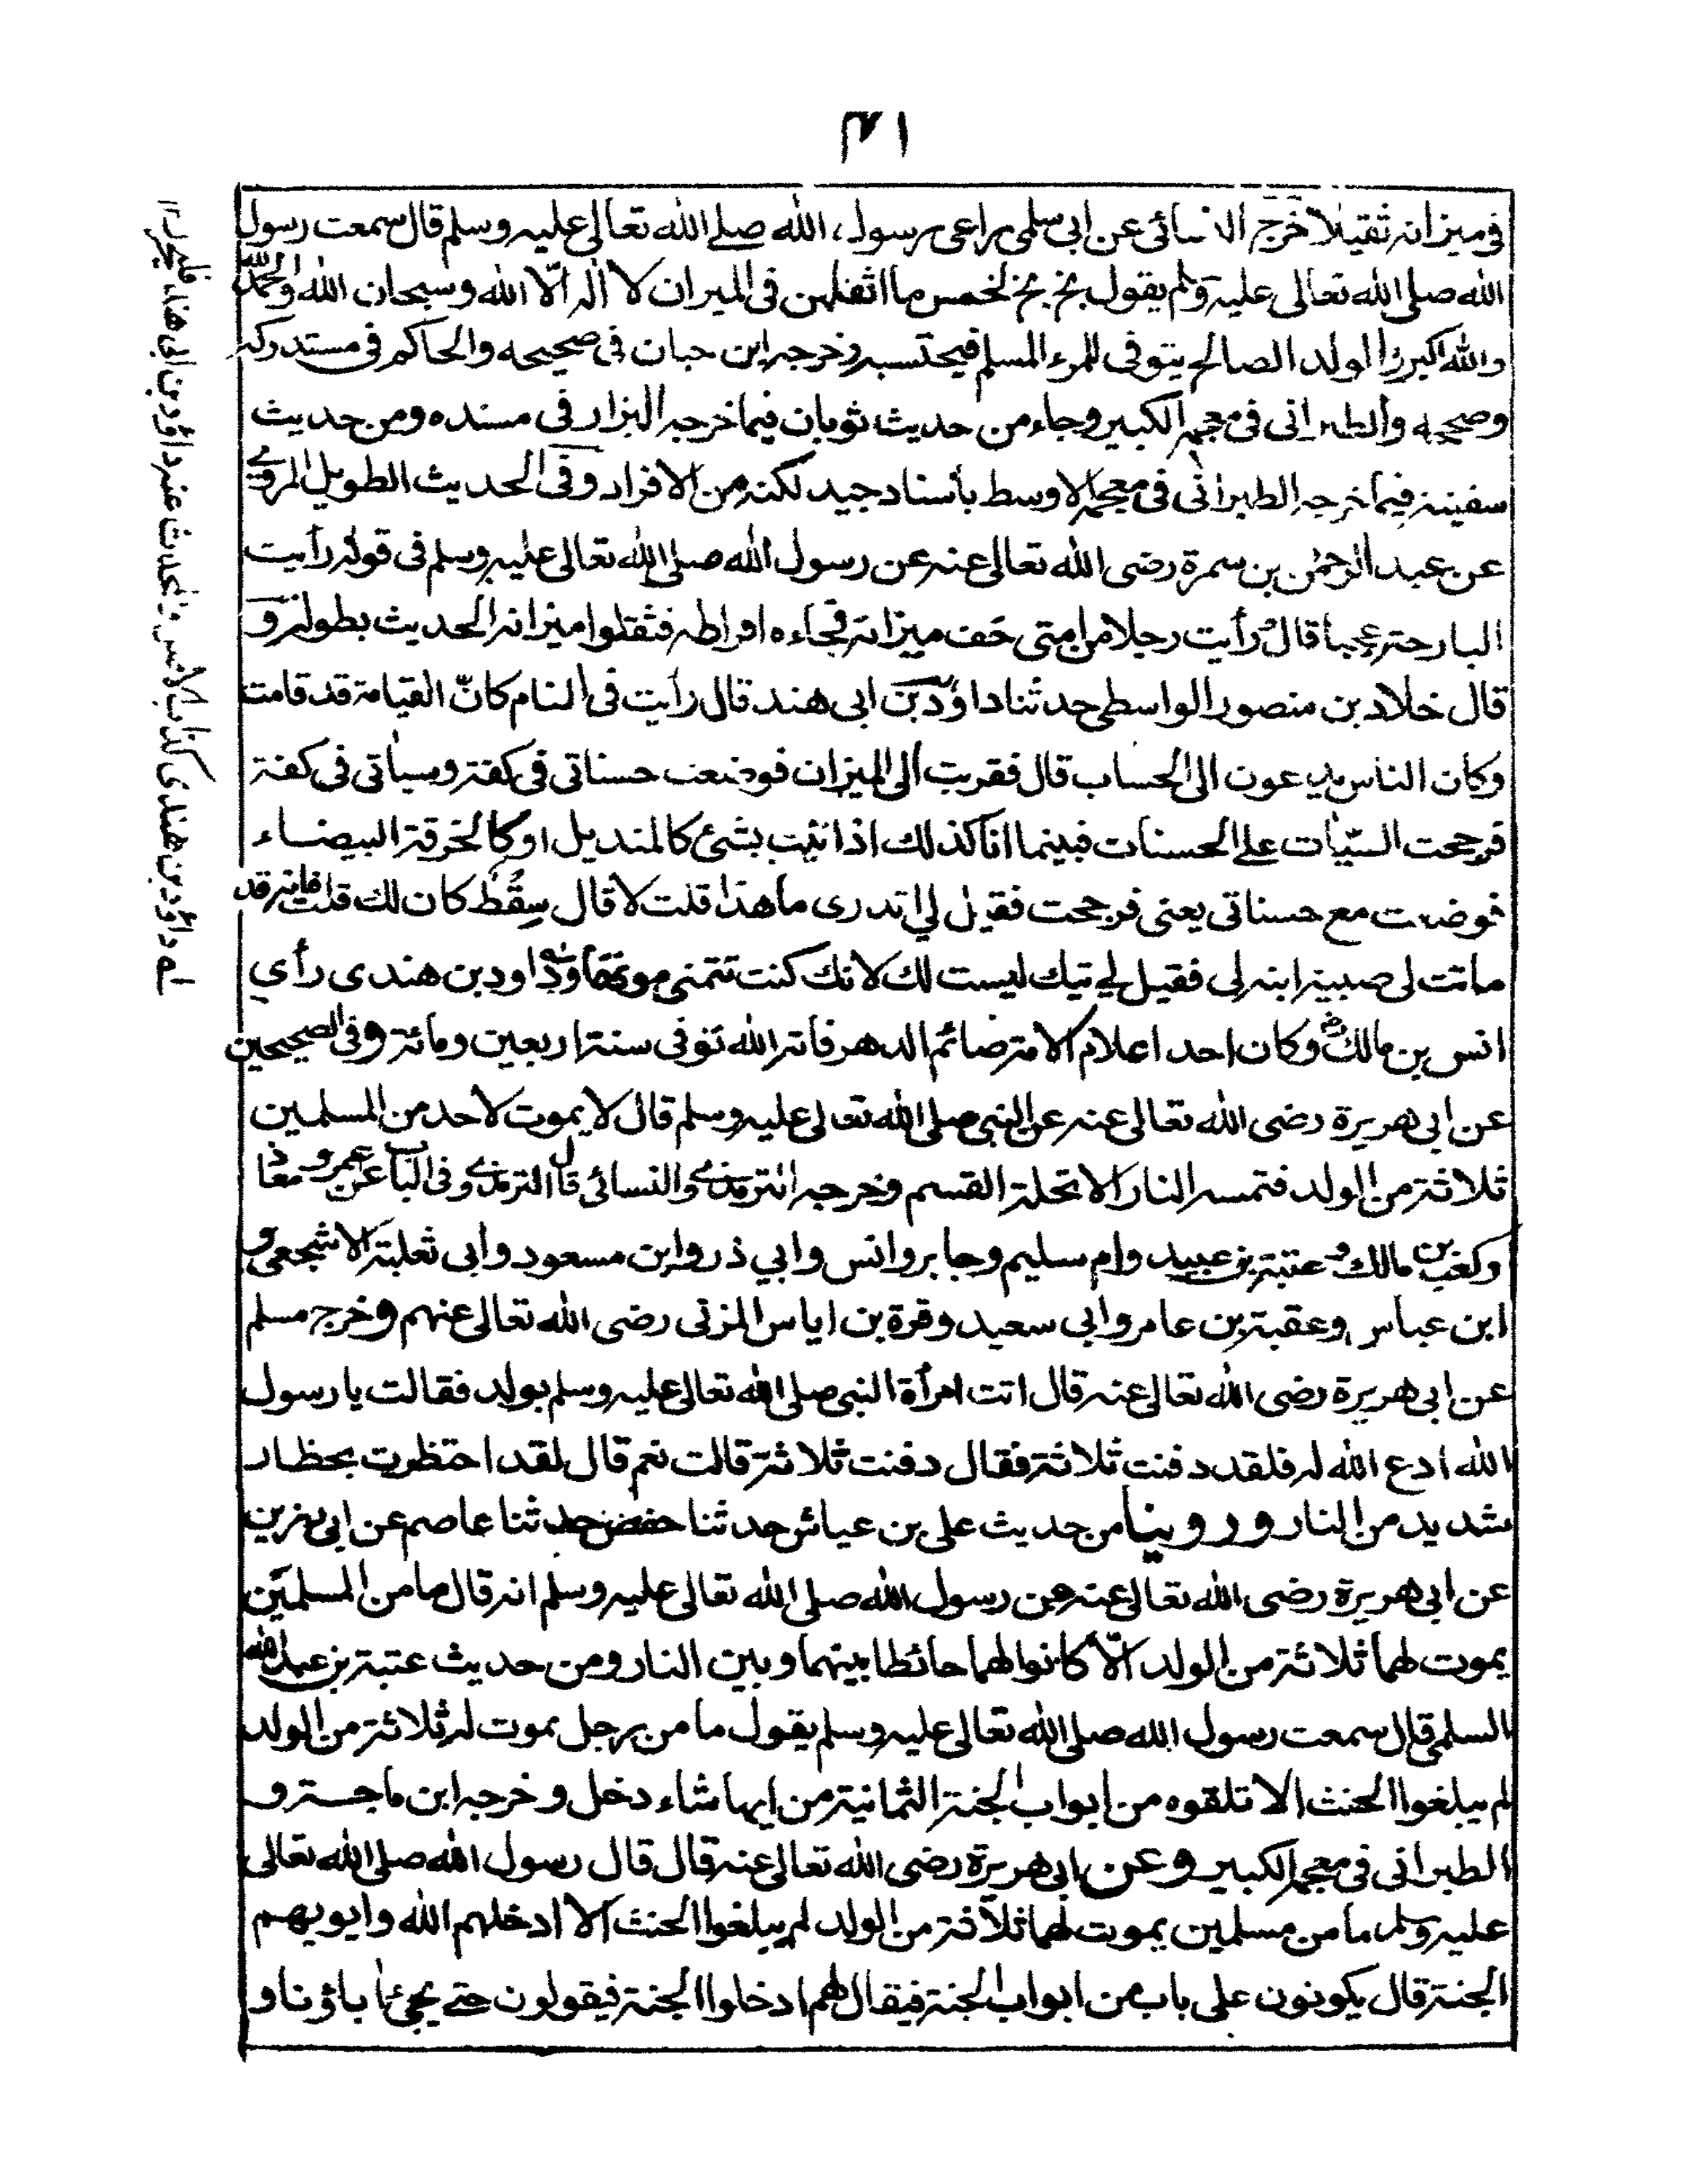 ١٣
في ميزانه ثقيلا خرج النسائى عن ابى سلمى راعى رسول الله صلے الله تعالى عليه وسلم قال سمعت رسول
الله صلى الله تعالى عليه وسلم يقول بخ بخ لخمس ما اثقلهن فى الميزان لا اله الّا الله وسبحان الله والحمد لله
والله اكبر والولد الصالح يتوفى للمرء المسلم فيحتسبه وخرجه ابن حبان فى صحيحه والحاكم فى مستدركه
وصححه والطبرانى فى معجمه الكبير وجاء من حديث ثوبان فيما خرجه البزار فى مسنده ومن حديث
سفينة فيما خرجه الطبرانى فى معجمه الاوسط بأسناد جيد لكنه من الافراد وفى الحديث الطويل المروے
عن عبد الرحمٰن بن سمرة رضى الله تعالى عنه عن رسول الله صلى الله تعالى عليه وسلم فى قوله رأيت
البارحة عجبا قال رأيت رجلا من امتى خف ميزانه فجاءه افراطه فثقلوا ميزانه الحديث بطوله و
قال خلاد بن منصور الواسطى حدثنا داؤد بن ابى هند قال رأيت فى المنام كانّ القيامة قد قامت
وكان الناس يدعون الى الحساب قال فقربت الى الميزان فوضعت حسناتى فى كفة وسيأتى فى كفة
فرجحت السيّأت على الحسنات فبينما انا كذلك اذا تيت بشئ كالمنديل او كالخرقة البيضاء
فوضعت مع حسناتى يعنى فرجحت فقيل لي اتدرى ما هذا قلت لا قال سِقْط كان لك قلت فانه قد
ماتت لى صبية ابنه لى فقيل لى تيك ليست لك لانك كنت تتمنى موتها وداود بن هندى رأى
انس بن مالك وكان احد اعلام الامة صائم الدهر قانة الله توفى سنة اربعين ومائة وفى الصحيحين
عن ابى هريرة رضى الله تعالى عنه عن النبى صلى الله تعالى عليه وسلم قال لا يموت لاحد من المسلمين
ثلاثة من الولد فتمسه النار الا تحلة القسم وخرجه الترمذے والنسائى قال الترمذے وفى الباب عن عمر و معاذ
وكعب بن مالك و عتبة بن عبيد وام سليم وجابر وانس وابي ذر وابن مسعود وابى ثعلبة الاشجعى و
ابن عباس وعقبة بن عامر وابى سعيد وقرة بن اياس المزنى رضى الله تعالى عنهم وخرج مسلم
عن ابى هريرة رضى الله تعالى عنه قال اتت امرأة النبى صلى الله تعالى عليه وسلم بولد فقالت يا رسول
الله ادع الله له فلقد دفنت ثلاثة فقال دفنت ثلاثة قالت نعم قال لقد احتظرت بحظار
شديد من النار و روينا من حديث على بن عياش حدثنا حفص حدثنا عاصم عن ابى رزين
عن ابى هريرة رضى الله تعالى عنه عن رسول الله صلى الله تعالى عليه وسلم انه قال ما من المسلمَين
يموت لهما ثلاثة من الولد الّا كانوا لهما حائطا بينهما وبين النار ومن حديث عتبة بن عبد الله
السلمى قال سمعت رسول الله صلى الله تعالى عليه وسلم يقول ما من رجل يموت له ثلاثة من الولد
لم يبلغوا الحنث الا تلقوه من ابواب الجنة الثمانية من ايها شاء دخل وخرجه ابن ماجة و
الطبرانى فى معجمه الكبير و عن ابى هريرة رضى الله تعالى عنه قال قال رسول الله صلى الله تعالى
عليه وسلم ما من مسلمين يموت لهما ثلاثة من الولد لم يبلغوا الحنث الا ادخلهم الله وابويهم
الجنة قال يكونون على باب من ابواب الجنة فيقال لهم ادخلوا الجنة فيقولون حتے يجئ اباؤنا و
له داؤد بن هندى كذا بالاصل والمحدث عنه داؤد بن ابى هند، فليحرر ١٢